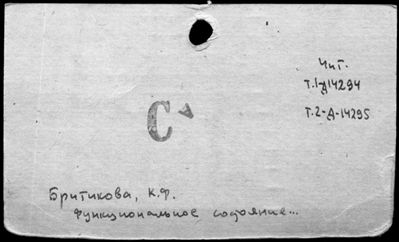 Чит.
т.1-Д14294
т.2-Д-14295
С А
Бритикова, К.Ф.
Функциональное состояние...